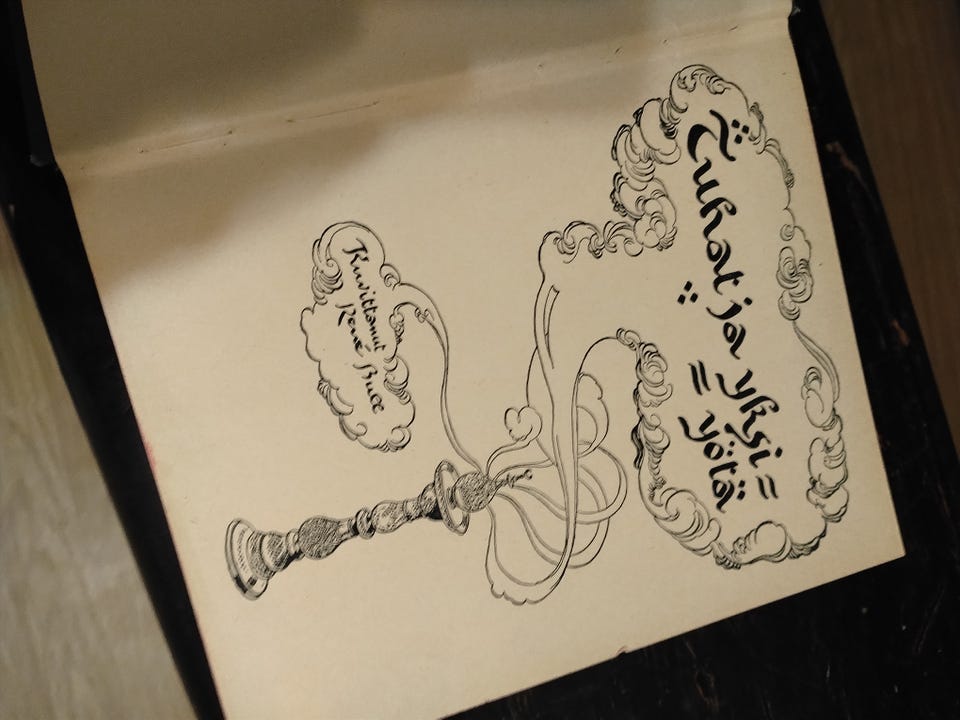 Tuhat ja yksi=
=yötä
Kuvittanut
René Bull